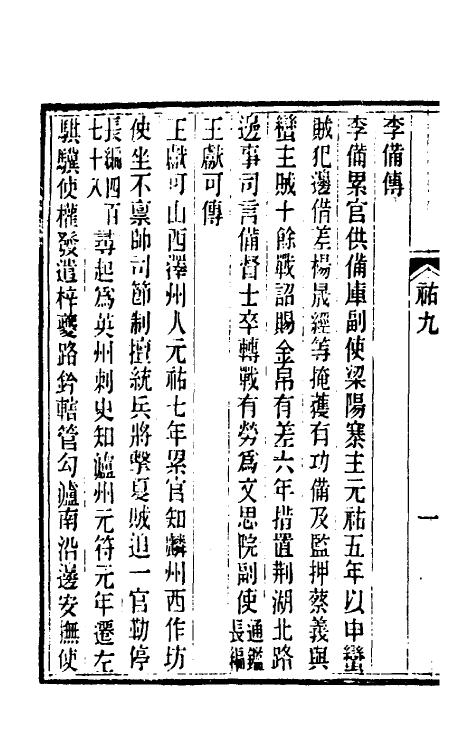 祐九
一
李備傳
李備累官供備庫副使梁陽寨主元祐五年以申蠻
賊犯邊借差楊晟經等掩獲有功備及監押蔡義與
蠻主賊十餘戰詔賜金帛有差六年措置荆湖北路
邊事司言備督士卒轉戰有勞爲文思院副使通鑑長編
王獻可傳
王獻可山西澤州人元祐七年累官知麟州西作坊
使坐不禀帥司節制擅統兵將擊夏賊追一官勒停
長編四百七十八尋起爲英州刺史知瀘州元符元年遷左
騏驥使權發遣梓夔路鈐轄管勾瀘南沿邊安撫使